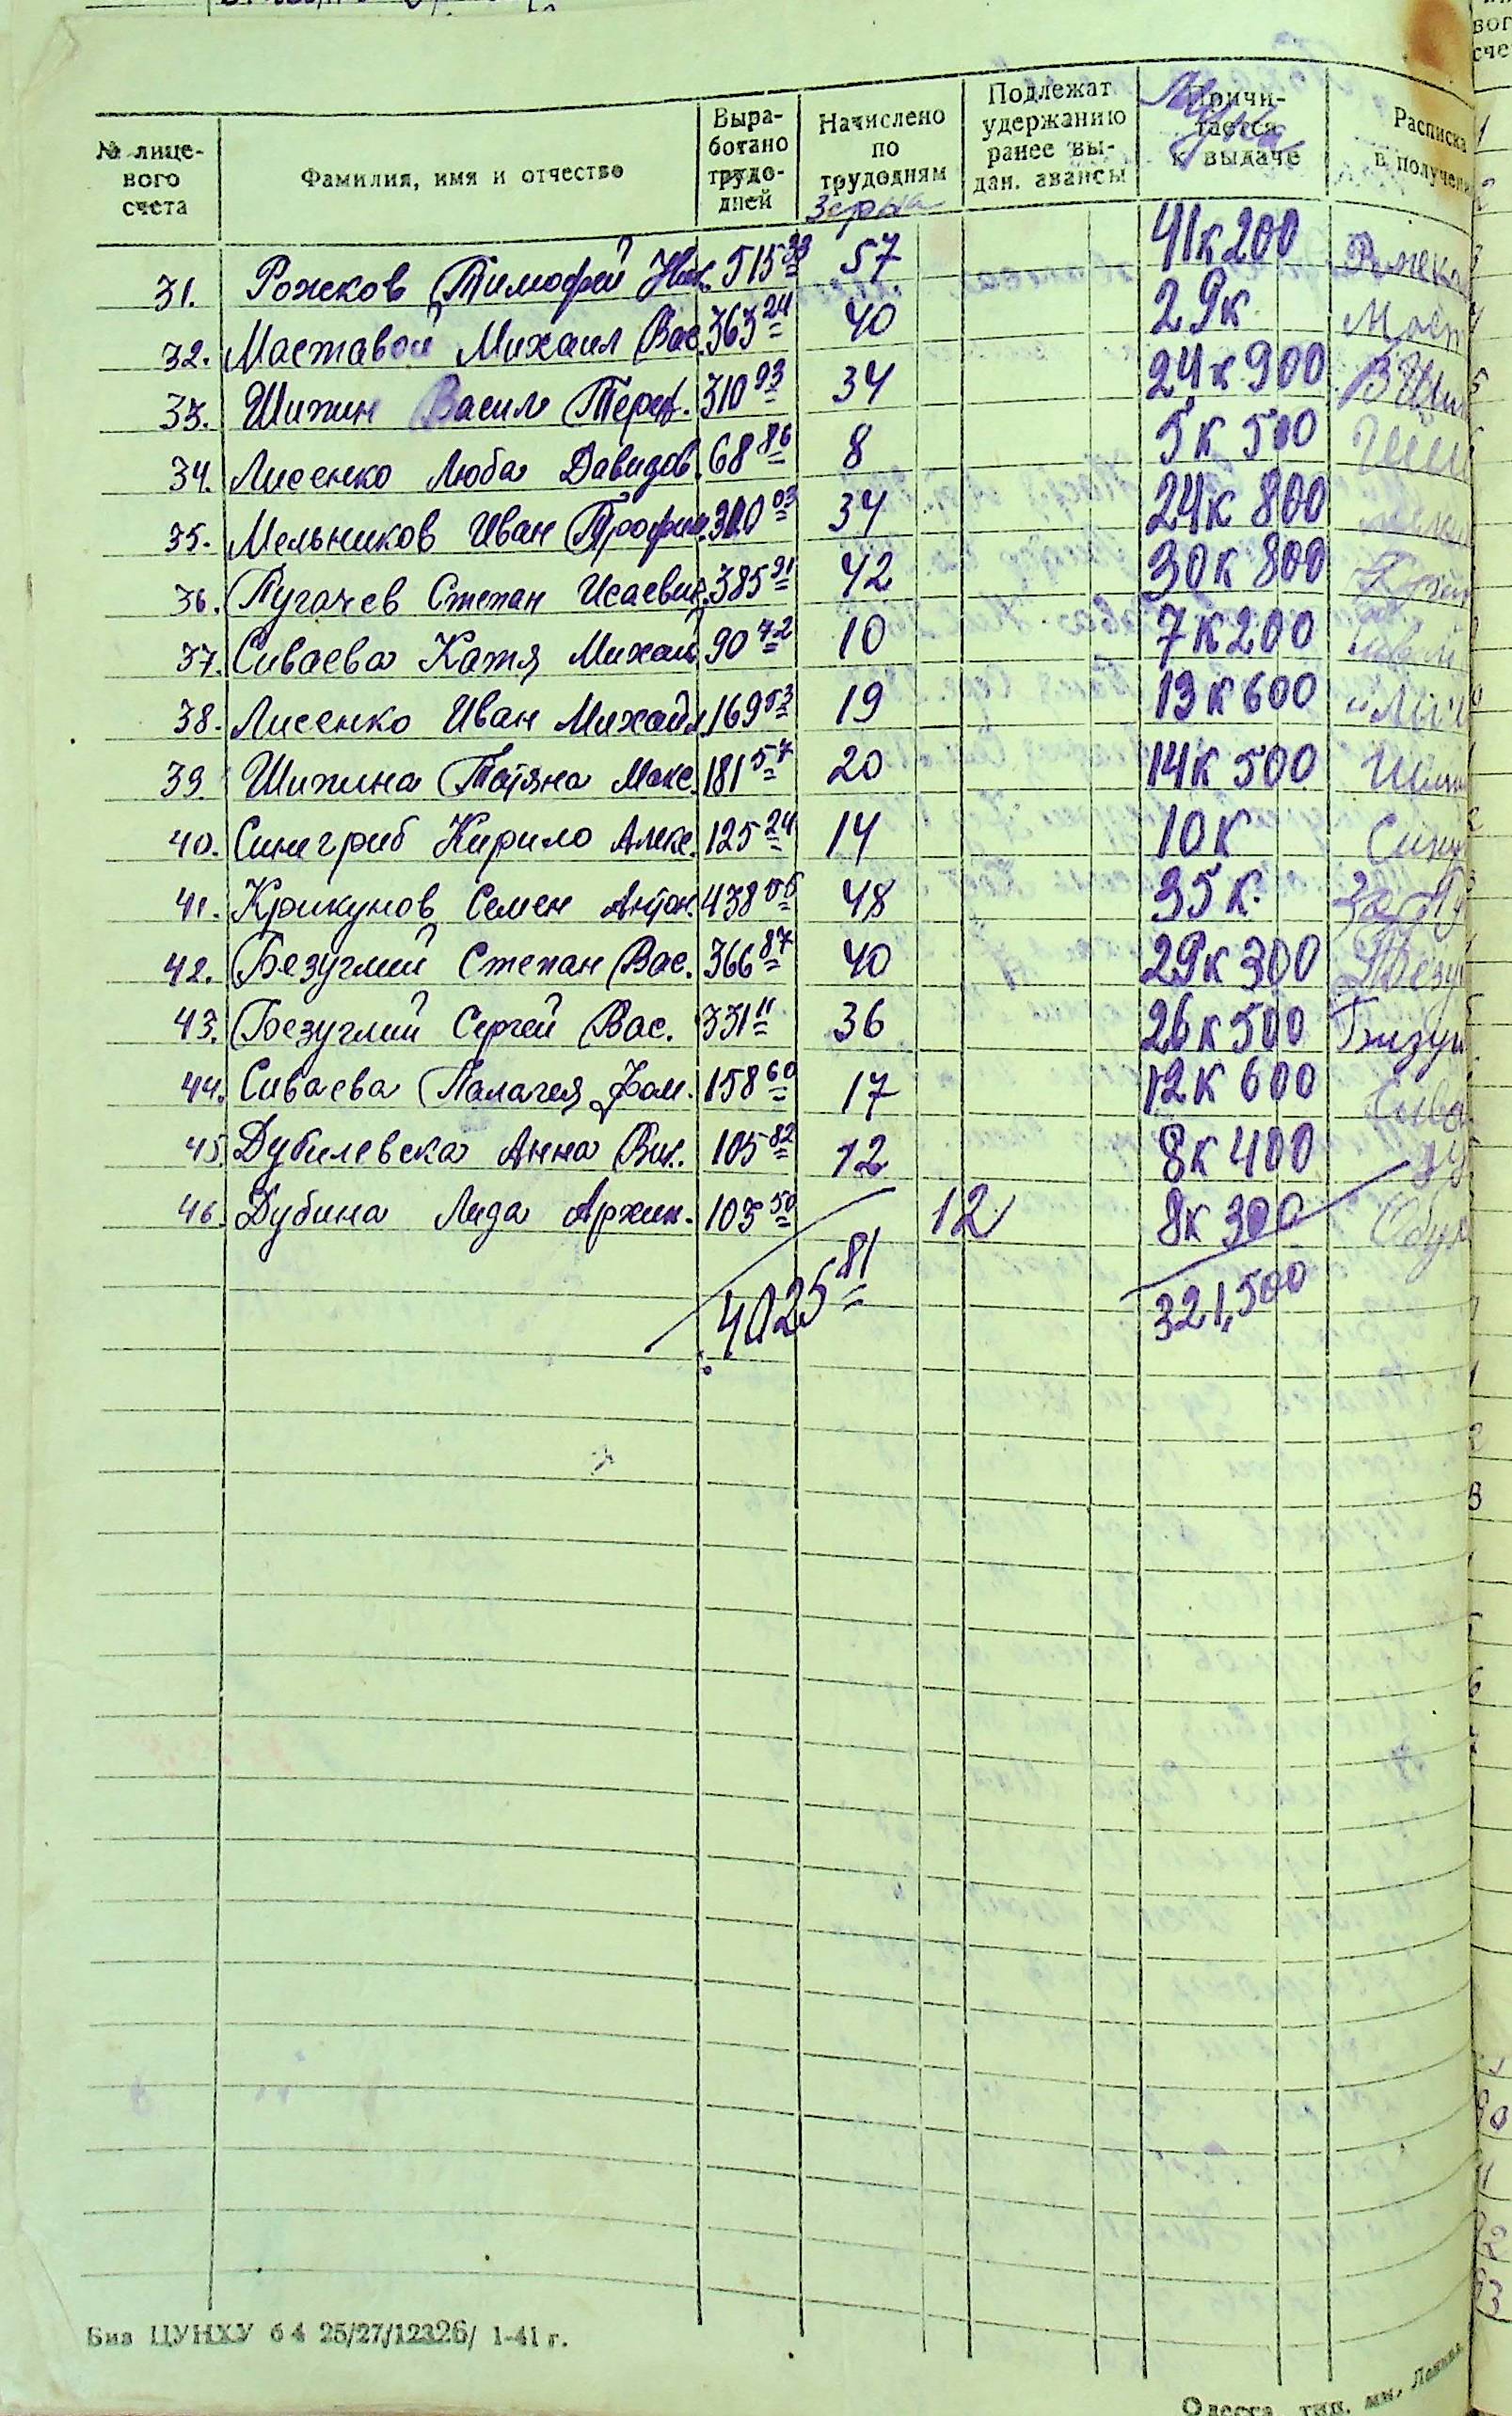 № лице-
вого
счета
Фамилия, имя и отчество
Выра-
ботано
трудо-
дней
Начислено
по
трудодням
Зерна
Подлежат
удержанию
ранее вы-
дан. авансы
Причи-
тается
к выдаче
Расписка
в получен
31. Рожков Тимофей Ник. 515 33 57 41к200
32. Моставой Михаил Вас. 363 24 40 29к
33. Шипин Васил Тереф. 310 93 34 24к900
34. Лисенко Люба Давидов. 68 86 8 5к500
35. Мельников Иван Трофим. 310 03 34 24к800
36. Пугачев Степан Исаевич. 385 91 42 30к800
37. Сиваева Катя Михай 90 42 10 7к200
38. Лисенко Иван Михайл. 169 53 19 13к600
39. Шипина Татяна Макс. 181 57 20 14к500
40. Синегриб Кирило Алекс. 125 24 14 10к
41. Крикунов Семен Антон. 438 55 48 35к.
42. Безуглий Степан Вас. 366 87 40 29к300
43. Безуглий Сергей Вас. 331 11 36 26к500
44. Сиваева Палагея Фом. 158 60 17 12к600
45. Дубилевска Анна Вик. 105 82 12 8к400
46. Дубина Лида Архип. 103 50 12 8к300
4025 81 321,500
Биз ЦУНХУ б4 25/27/12326/ 1-41 г.
Одесса, тип. им. Ленина